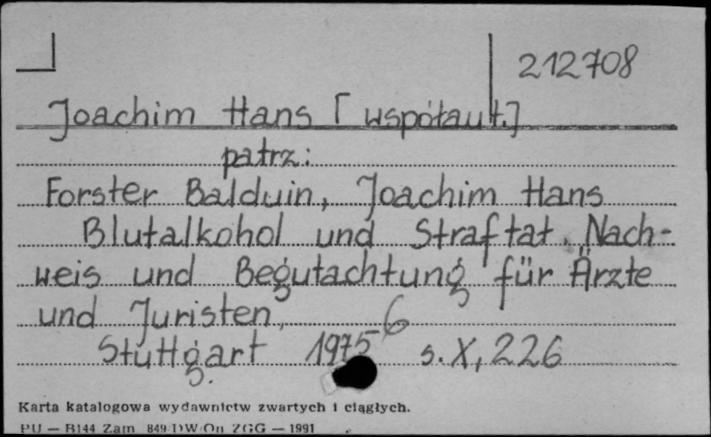 212708
Joachim Hans [współaut.]
patrz:
Forster Balduin, Joachim Hans
Blutalkohol und Straftat. Nach-
weis und Begutachtung für Ärzte
und Juristen.
6
Stuttgart 1975 s. X, 226
Karta katalogowa wydawnictw zwartych i ciągłych.
PU — B144 Zam 849 DW On ZGG — 1991